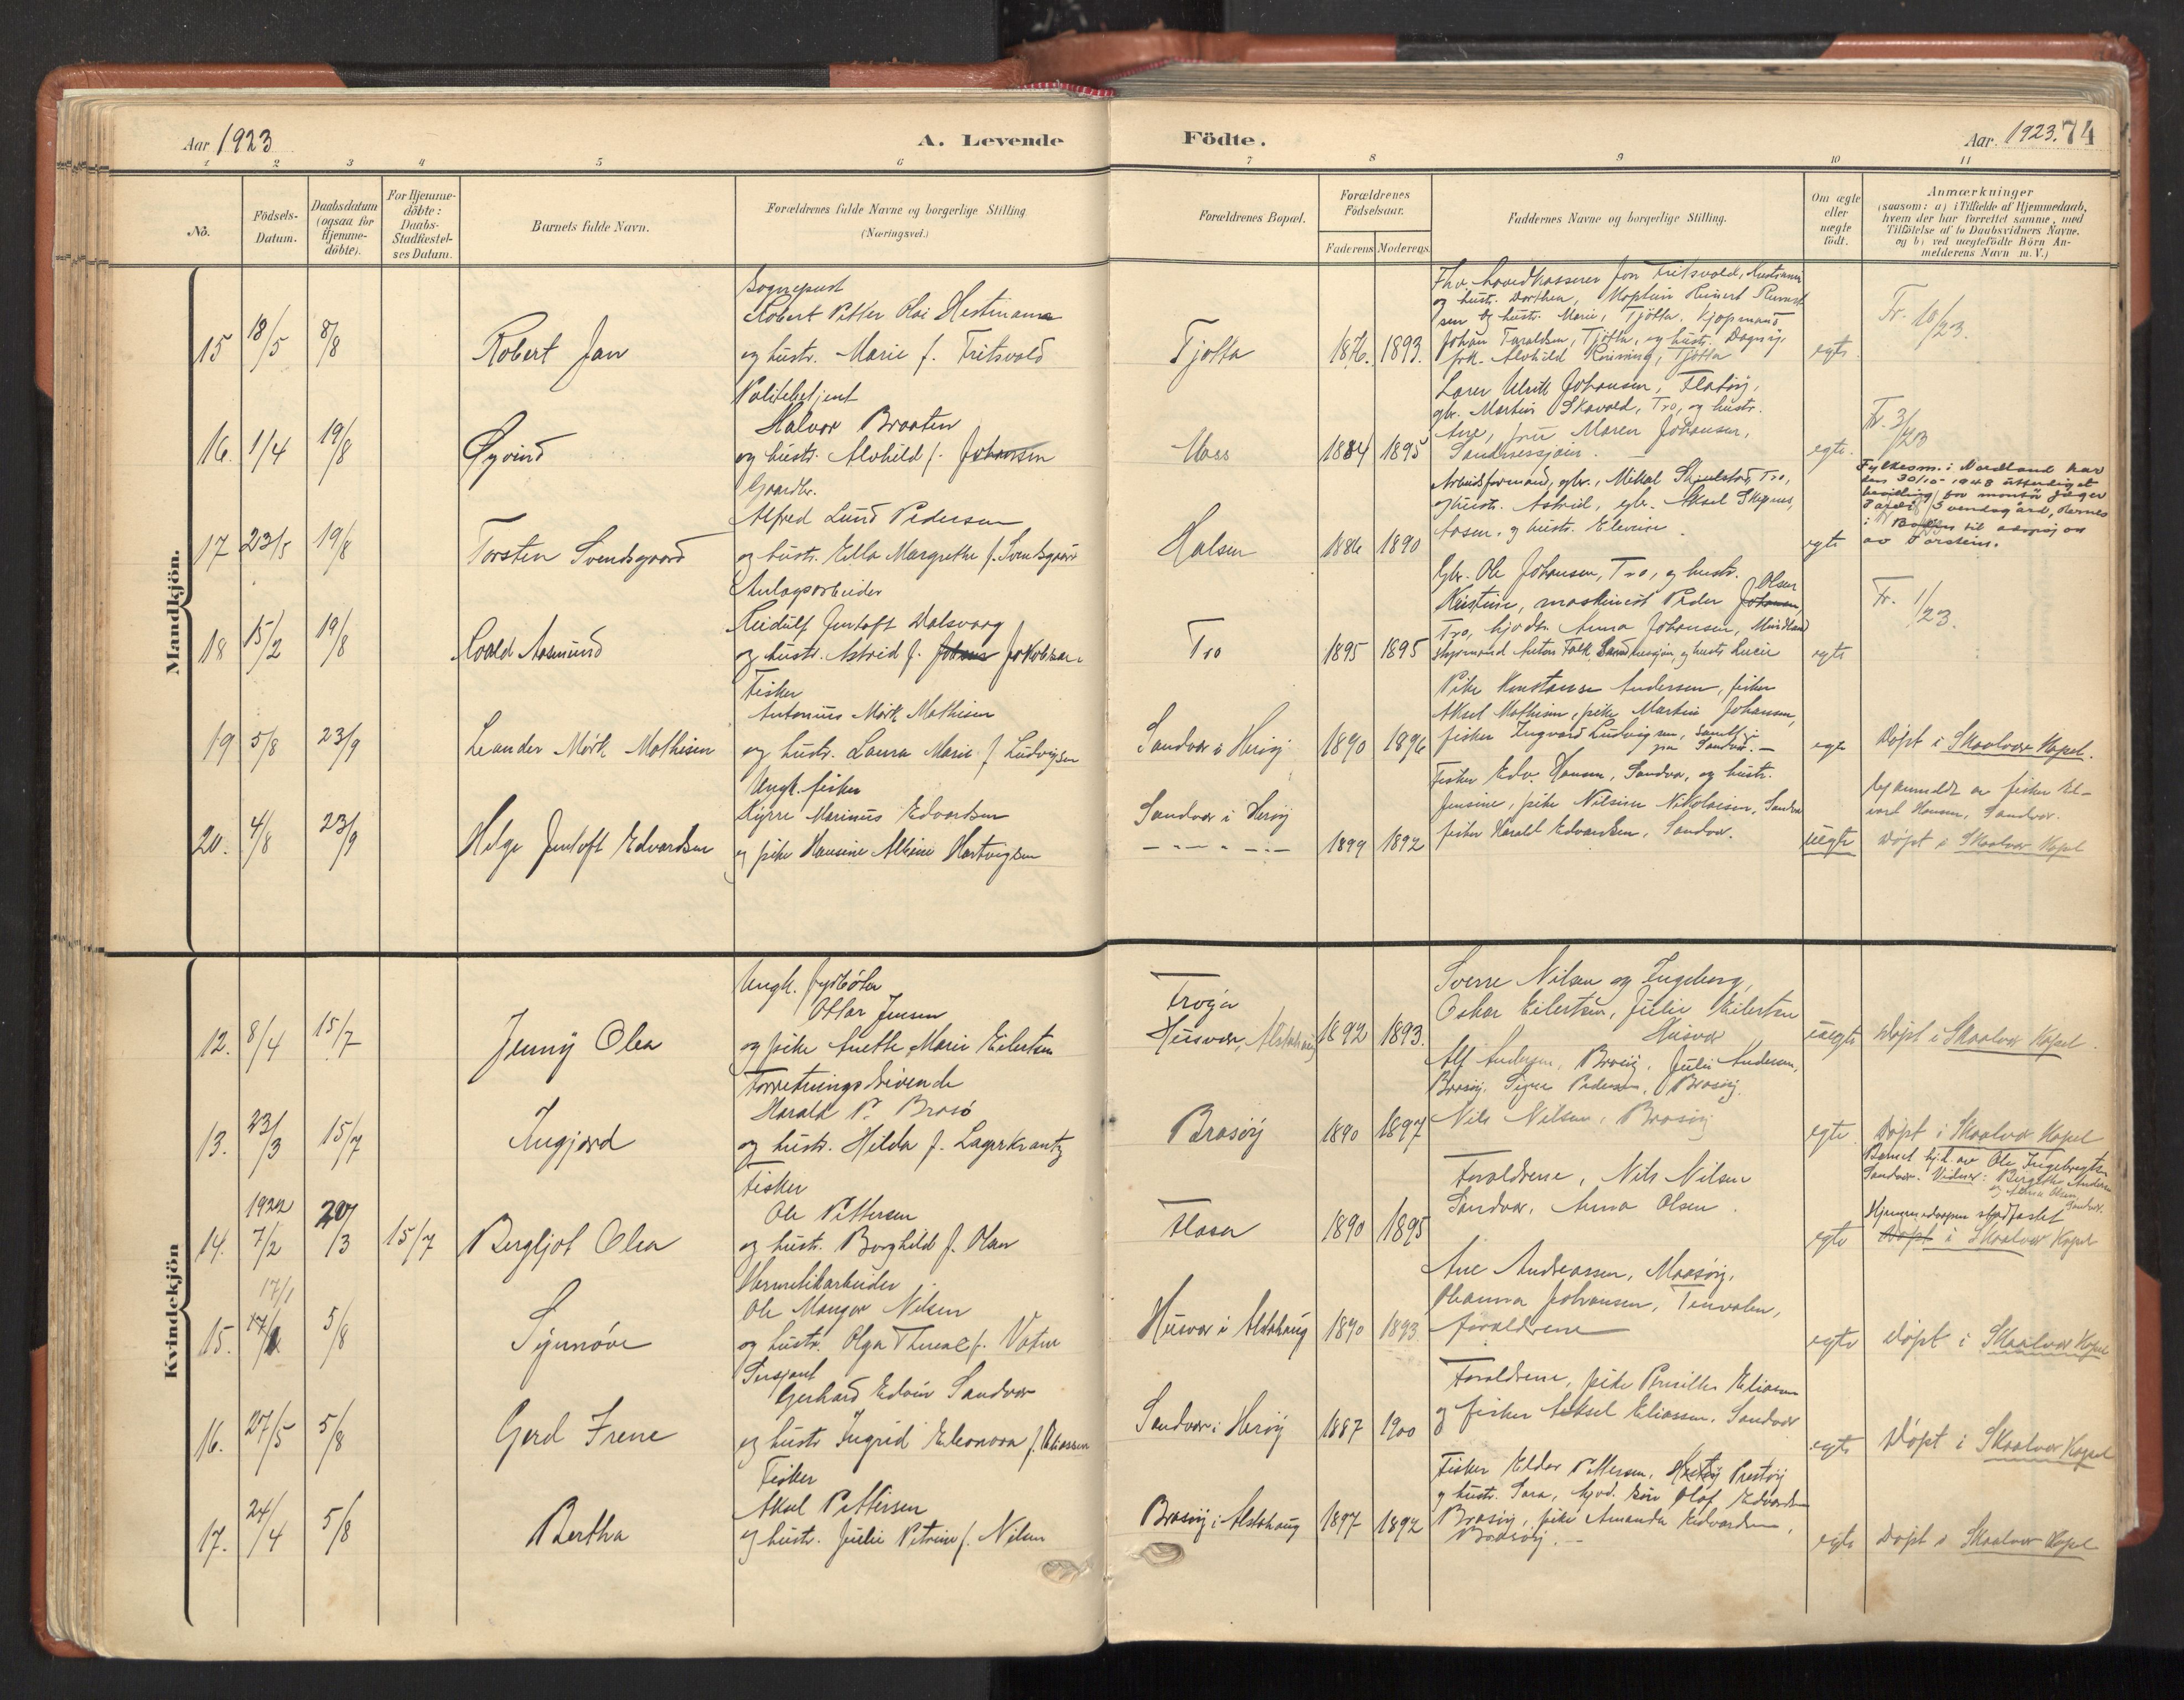 Aar 1923
A. Levende
Födte.
Aar. 1923. 74
1 2 3 4 5 6 7 8 9 10 11
No.
Födsels-
Datum.
Daabsdatum
(ogsaa for
Hjemme-
döbte).
For Hjemme-
döbte:
Daabs-
Stadfæstel-
ses Datum.
Barnets fulde Navn.
Forældrenes fulde Navne og borgerlige Stilling
(Næringsvei.)
Forældrenes Bopæl.
Forældrenes
Födselsaar.
Faderens Moderens
Faddernes Navne og borgerlige Stilling.
Om ægte
eller
uægte
födt.
Anmærkninger
(saasom: a) i Tilfælde af Hjemmedaab,
hvem der har forrettet samme, med
Tilföielse af to Daabsvidners Navne.
og b) ved uægtefödte Börn An-
melderens Navn m. V.)
Mandkjön.
15 18/5 8/8
Robert Jan
Sogneprest
Robert Petter Olai Hestmann
og hustr. Marie f. Fritsvold
Tjøtta
1876. 1893.
Fhv. hovedkasserer Jon Fritsvold, Kristiania
og hustr. Dorthea, Kaptein Reinert
sen og hustr. Marie, Tjøtta. Kjøpmand
Johan Taraldsen, Tjøtta, og hustr. Dagny,
frk. Alvhild Tjøtta
egte.
Fr. 10/23.
16. 1/4 19/8
Øyvind
Politibetjent
Halvor Braaten
og hustr. Alvhild f. Johansen
Moss
1884 1895
Lærer Ulrik Johansen, Flatøy,
gbr. Martin Skavold, Tro, og hustr.
Ane, fru Maren Johansen,
Sandnessjøen.
egte.
Fr. 3/23
17 23/5 19/8
Torsten Svendsgaard
Gaardbr.
Alfred Lund Pedersen
og hustr. Ella Margrethe f. Svendsgaard
Halsen
1886 1890
Arbeidsformand, gbr., Mikal Skjelstad, Tro,
og hustr. Astrid, gbr. Aksel
Aasen, og hustr. Elevine.
egte
Fylkesm. i Nordland har
den 30/10-1948 utferdiget
bevilling for montør Jæger
Svendsgård, Nernes
i til adopsjon
av Torstein.
18 15/2 19/8
Roald Aasmund
Anlagsarbeider
Reidulf Jentoft Dalsvaag
og hustr. Astrid f. Johans Jakobsen
Tro
1895 1895
Gbr. Ole Johansen, Tro, og hustr.
Olsen
Kristine, maskinist Peder Johansen,
Tro, hjvdtr. Anna Johansen, Mindland
styrmand Anton Falk, Sandnessjøen, og hustr. Lucie
egte
Fr. 1/23.
19 5/8 23/9
Leander Mørk Mathisen
Fisker
Antonius Mørk Mathisen
og hustr. Laura Marie f. Ludvigsen
Sandvær i Herøy
1890 1896
Pike Konstanse Andersen, fisker
Aksel Mathisen, pike Martine Johansen,
fisker Ingvard Ludvigsen, samtl.
fra Sandvær.—
egte
Døpt i Skaalvær Kapel.
20. 4/8 23/9
Helge Jentoft Edvardsen
Ungk. fisker
Kyrre Marinus Edvardsen
og pike Hansine Albine Hartvigsen
Sandvær i Herøy
1899 1892
Fisker Edv. Hansen, Sandvær, og hustr.
Jensine, pike Nilsine Nikolaisen, Sandvær
fisker Harald Edvardsen, Sandvær.
uegte
Er anmeldt av fisker Ed-
vard Hansen, Sandvær.
Døpt i Skaalvær Kapel
Kvindekjön
12. 8/4 15/7
Jenny Olea
Ungk. fyrbøter
Ottar Jensen
og pike Anette Marie Eilertsen
Husvær, Alstahaug
1892 1893.
Sverre Nilsen og Ingeborg,
Oskar Eilertsen, Julie Eilertsen
Husvær
uegte
Døpt i Skaalvær Kapel.
13. 23/3 15/7
Ingjerd
Forretningsdrivende
Harald P. Brasø
og hustr. Hilda f. Lagerkrantz
Brasøy
1890 1897
Alf Andersen, Brasøy, Julie Andersen,
Brasøy, Signe Pedersen, Brasøy.
Nils Nilsen, Brasøy
egte.
Døpt i Skaalvær Kapel
14. 1922
7/2 20/3 15/7
Bergljot Olea
Fisker
Ole Pettersen
og hustr. Borghild f. Olsen
Flosa
1890 1895
Forældrene, Nils Nilsen
Sandvær, Anna Olsen.
egte
Barnet hj.d. av Ole Ingebrigtsen
Sandvær. Vidner: Bergitte Andersen
og Anna Olsen,
Sandvær.
Hjemmedaapen stadfæstet
Døpt i Skaalvær Kapel
15. 17/1
17/1 5/8
Synnøve
Hermetikarbeider
Ole Mangor Nilsen
og hustr. Olga Therese f. Vatne
Husvær i Alstahaug
1890 1893
Ane Andreassen, Maasøy,
Olianna Johansen, Tenvalen,
forældrene
egte
Døpt i Skaalvær Kapel
16. 27/5 5/8
Gerd Irene
Sersjant
Gerhard Edvin Sandvær
og hustr. Ingrid Eleonora f. Eliassen
Sandvær i Herøy
1887 1900
Forældrene, pike Prisille Eliassen
og fisker Aksel Eliassen, Sandvær
egte
Døpt i Skaalvær Kapel
17. 24/4 5/8
Bertha
Fisker
Aksel Pettersen
og hustr. Julie Petrine f. Nilsen
Brasøy i Alstahaug
1897 1892
Fisker Eldar Pettersen, Prestøy
og hustr. Sara, hjvd. søn Olaf Edvardsen
Brasøy, pike Amanda Edvardsen,
Brasøy.—
egte
Døpt i Skaalvær Kapel